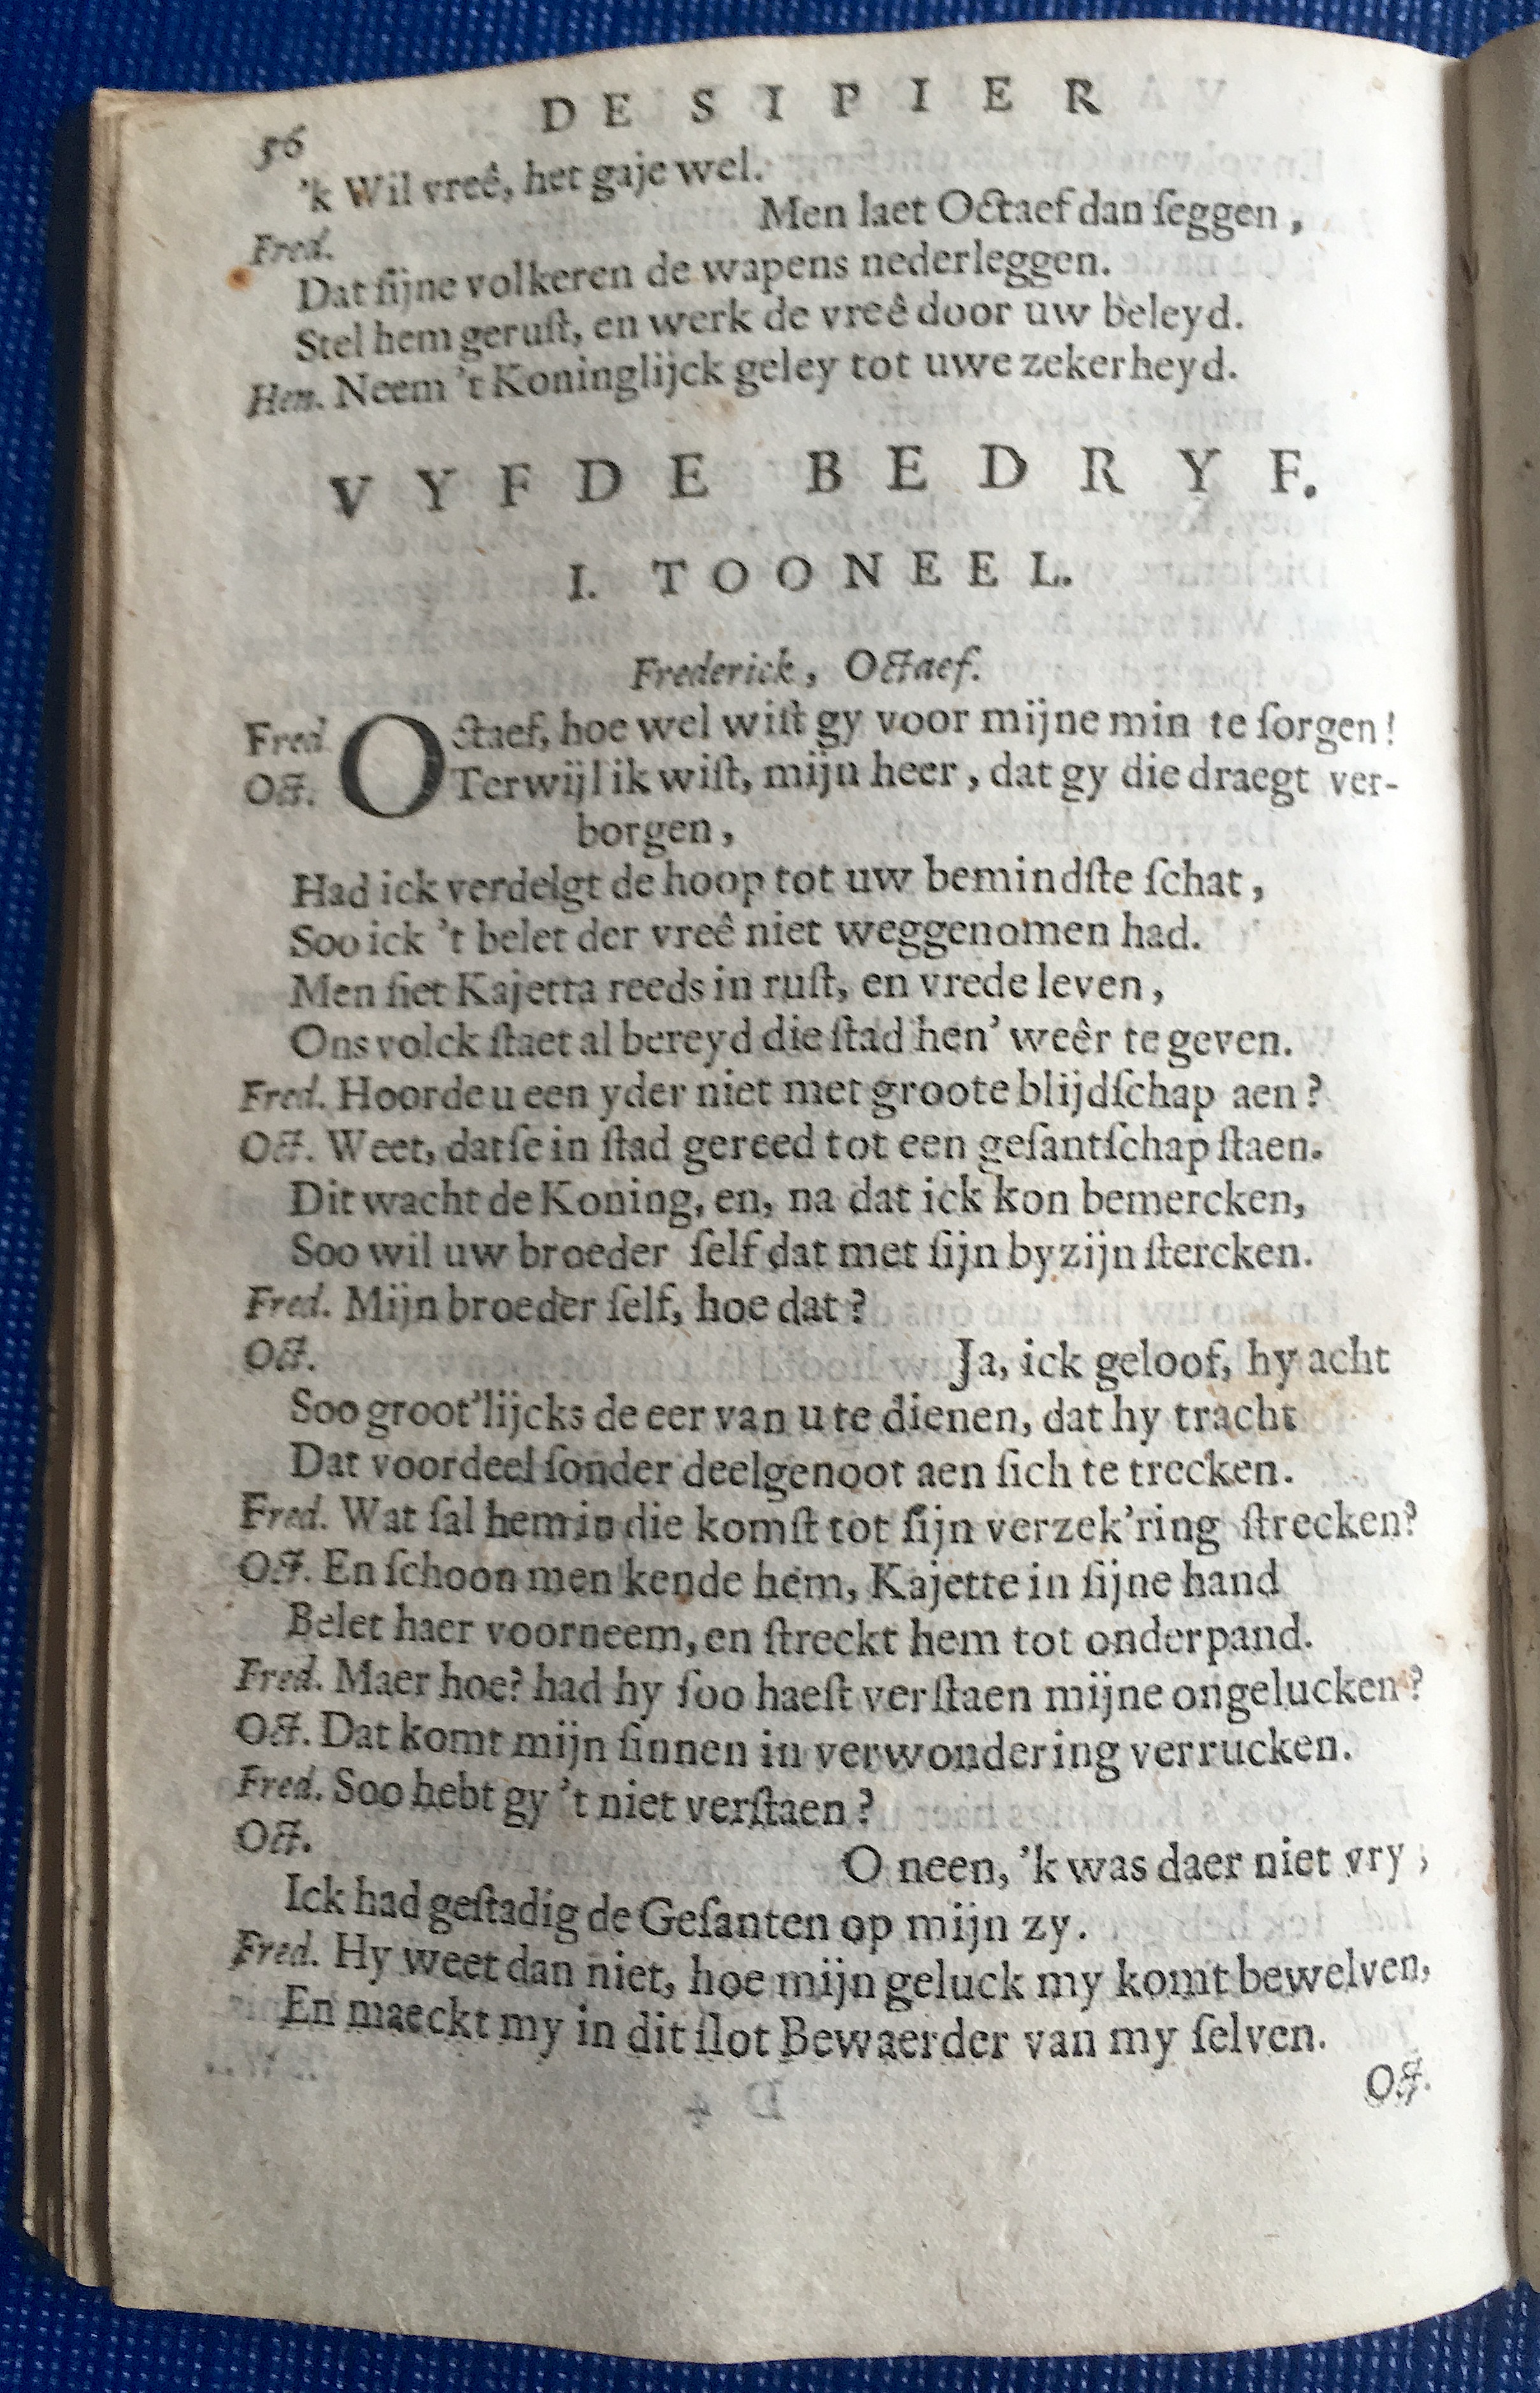 56 DE SIPIER
'k Wil vreê, het gaje wel.
Fred. Men laet Octaef dan ſeggen,
Dat ſijne volkeren de wapens nederleggen.
Stel hem geruſt, en werk de vreê door uw beleyd.
Hen. Neem 't Koninglijck geley tot uwe zekerheyd.
VYFDE BEDRYF.
I. TOONEEL.
Frederick, Octaef.
Fred Octaef, hoe wel wiſt gy voor mijne min te ſorgen!
Oct. Terwijl ik wiſt, mijn heer, dat gy die draegt ver-
borgen,
Had ick verdelgt de hoop tot uw bemindſte ſchat,
Soo ick 't belet der vreê niet weggenomen had.
Men ſiet Kajetta reeds in ruſt, en vrede leven,
Ons volck ſtaet al bereyd die ſtad hen' weêr te geven.
Fred. Hoorde u een yder niet met groote blijdſchap aen?
Oct. Weet, datſe in ſtad gereed tot een geſantſchap ſtaen.
Dit wacht de Koning, en, na dat ick kon bemercken,
Soo wil uw broeder ſelf dat met ſijn byzijn ſtercken.
Fred. Mijn broeder ſelf, hoe dat?
Oct. Ja, ick geloof, hy acht
Soo groot'lijcks de eer van u te dienen, dat hy tracht
Dat voordeel ſonder deelgenoot aen ſich te trecken.
Fred. Wat ſal hem in die komſt tot ſijn verzek'ring ſtrecken?
Oct. En ſchoon men kende hem, Kajette in ſijne hand
Belet haer voorneem, en ſtreckt hem tot onderpand.
Fred. Maer hoe? had hy ſoo haeſt verſtaen mijne ongelucken?
Oct. Dat komt mijn ſinnen in verwondering verrucken.
Fred. Soo hebt gy 't niet verſtaen?
Oct. O neen, 'k was daer niet vry;
Ick had geſtadig de Geſanten op mijn zy.
Fred. Hy weet dan niet, hoe mijn geluck my komt bewelven,
En maeckt my in dit ſlot Bewaerder van my ſelven.
Oct.